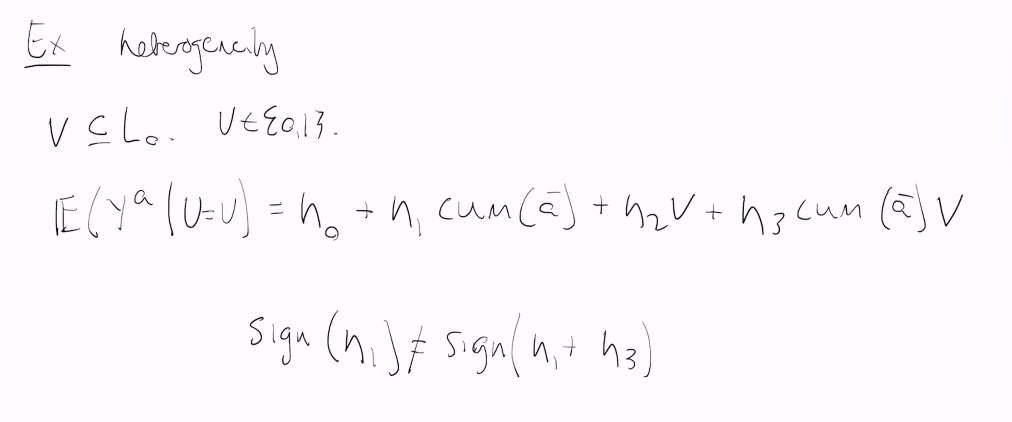 Ex heterogeneity
V ⊆ L₀. V∈{0,1}.
𝔼(Yᵃ|V=v) = η₀ + η₁ cum(ā) + η₂V + η₃ cum(ā)V
sign(η₁) ≠ sign(η₁ + η₃)